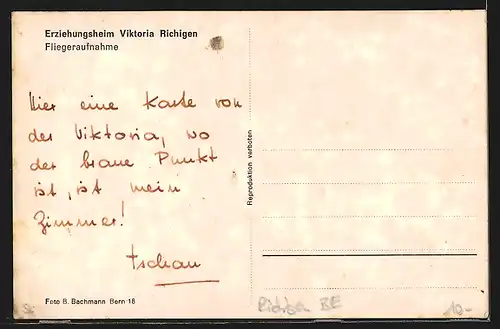 Erziehungsheim Viktoria Richigen
Fliegeraufnahme
Hier eine Karte von
der Viktoria, wo
der braue Punkt
ist, ist mein
Zimmer!
tschau
Reproduktion verboten
Foto B. Bachmann Bern 18
BE
10.-